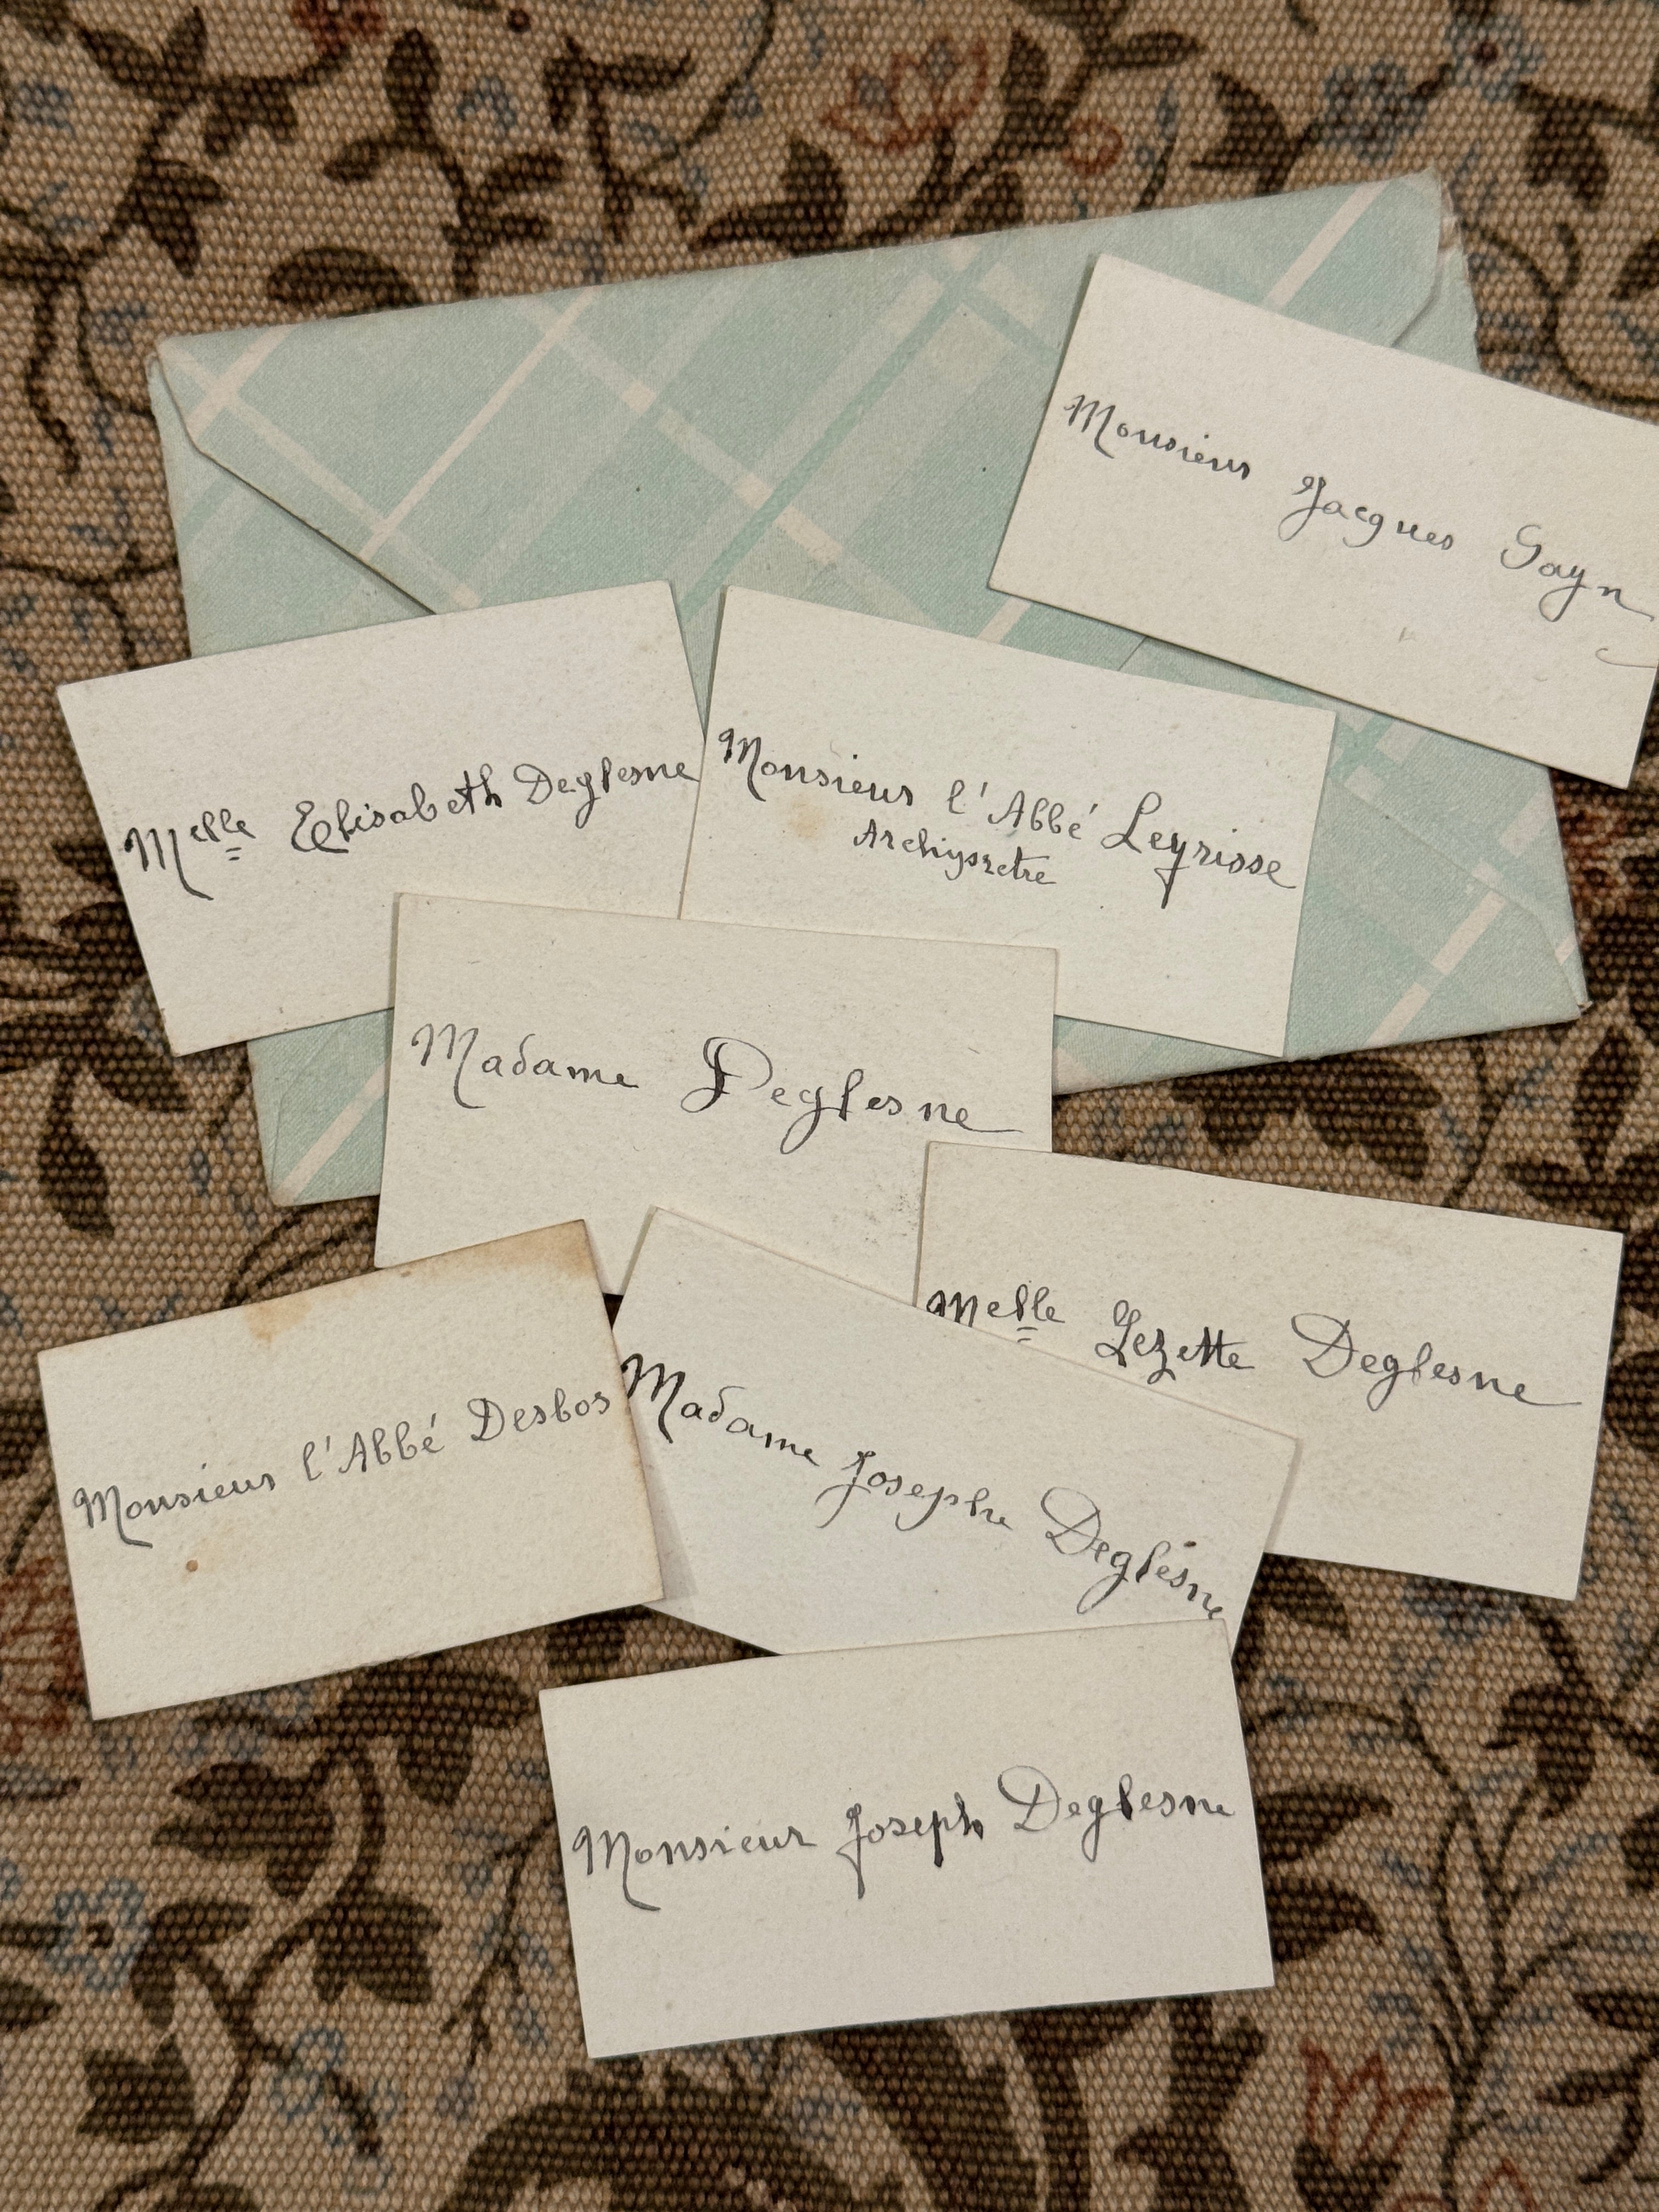 Monsieur Jacques Gayn
Melle Elisabeth Deglesne
Monsieur l'Abbé Leyrisse
Archiprêtre
Madame Deglesne
Melle Lezette Deglesne
Monsieur l'Abbé Desbos
Madame Joseph Deglesne
Monsieur Joseph Deglesne